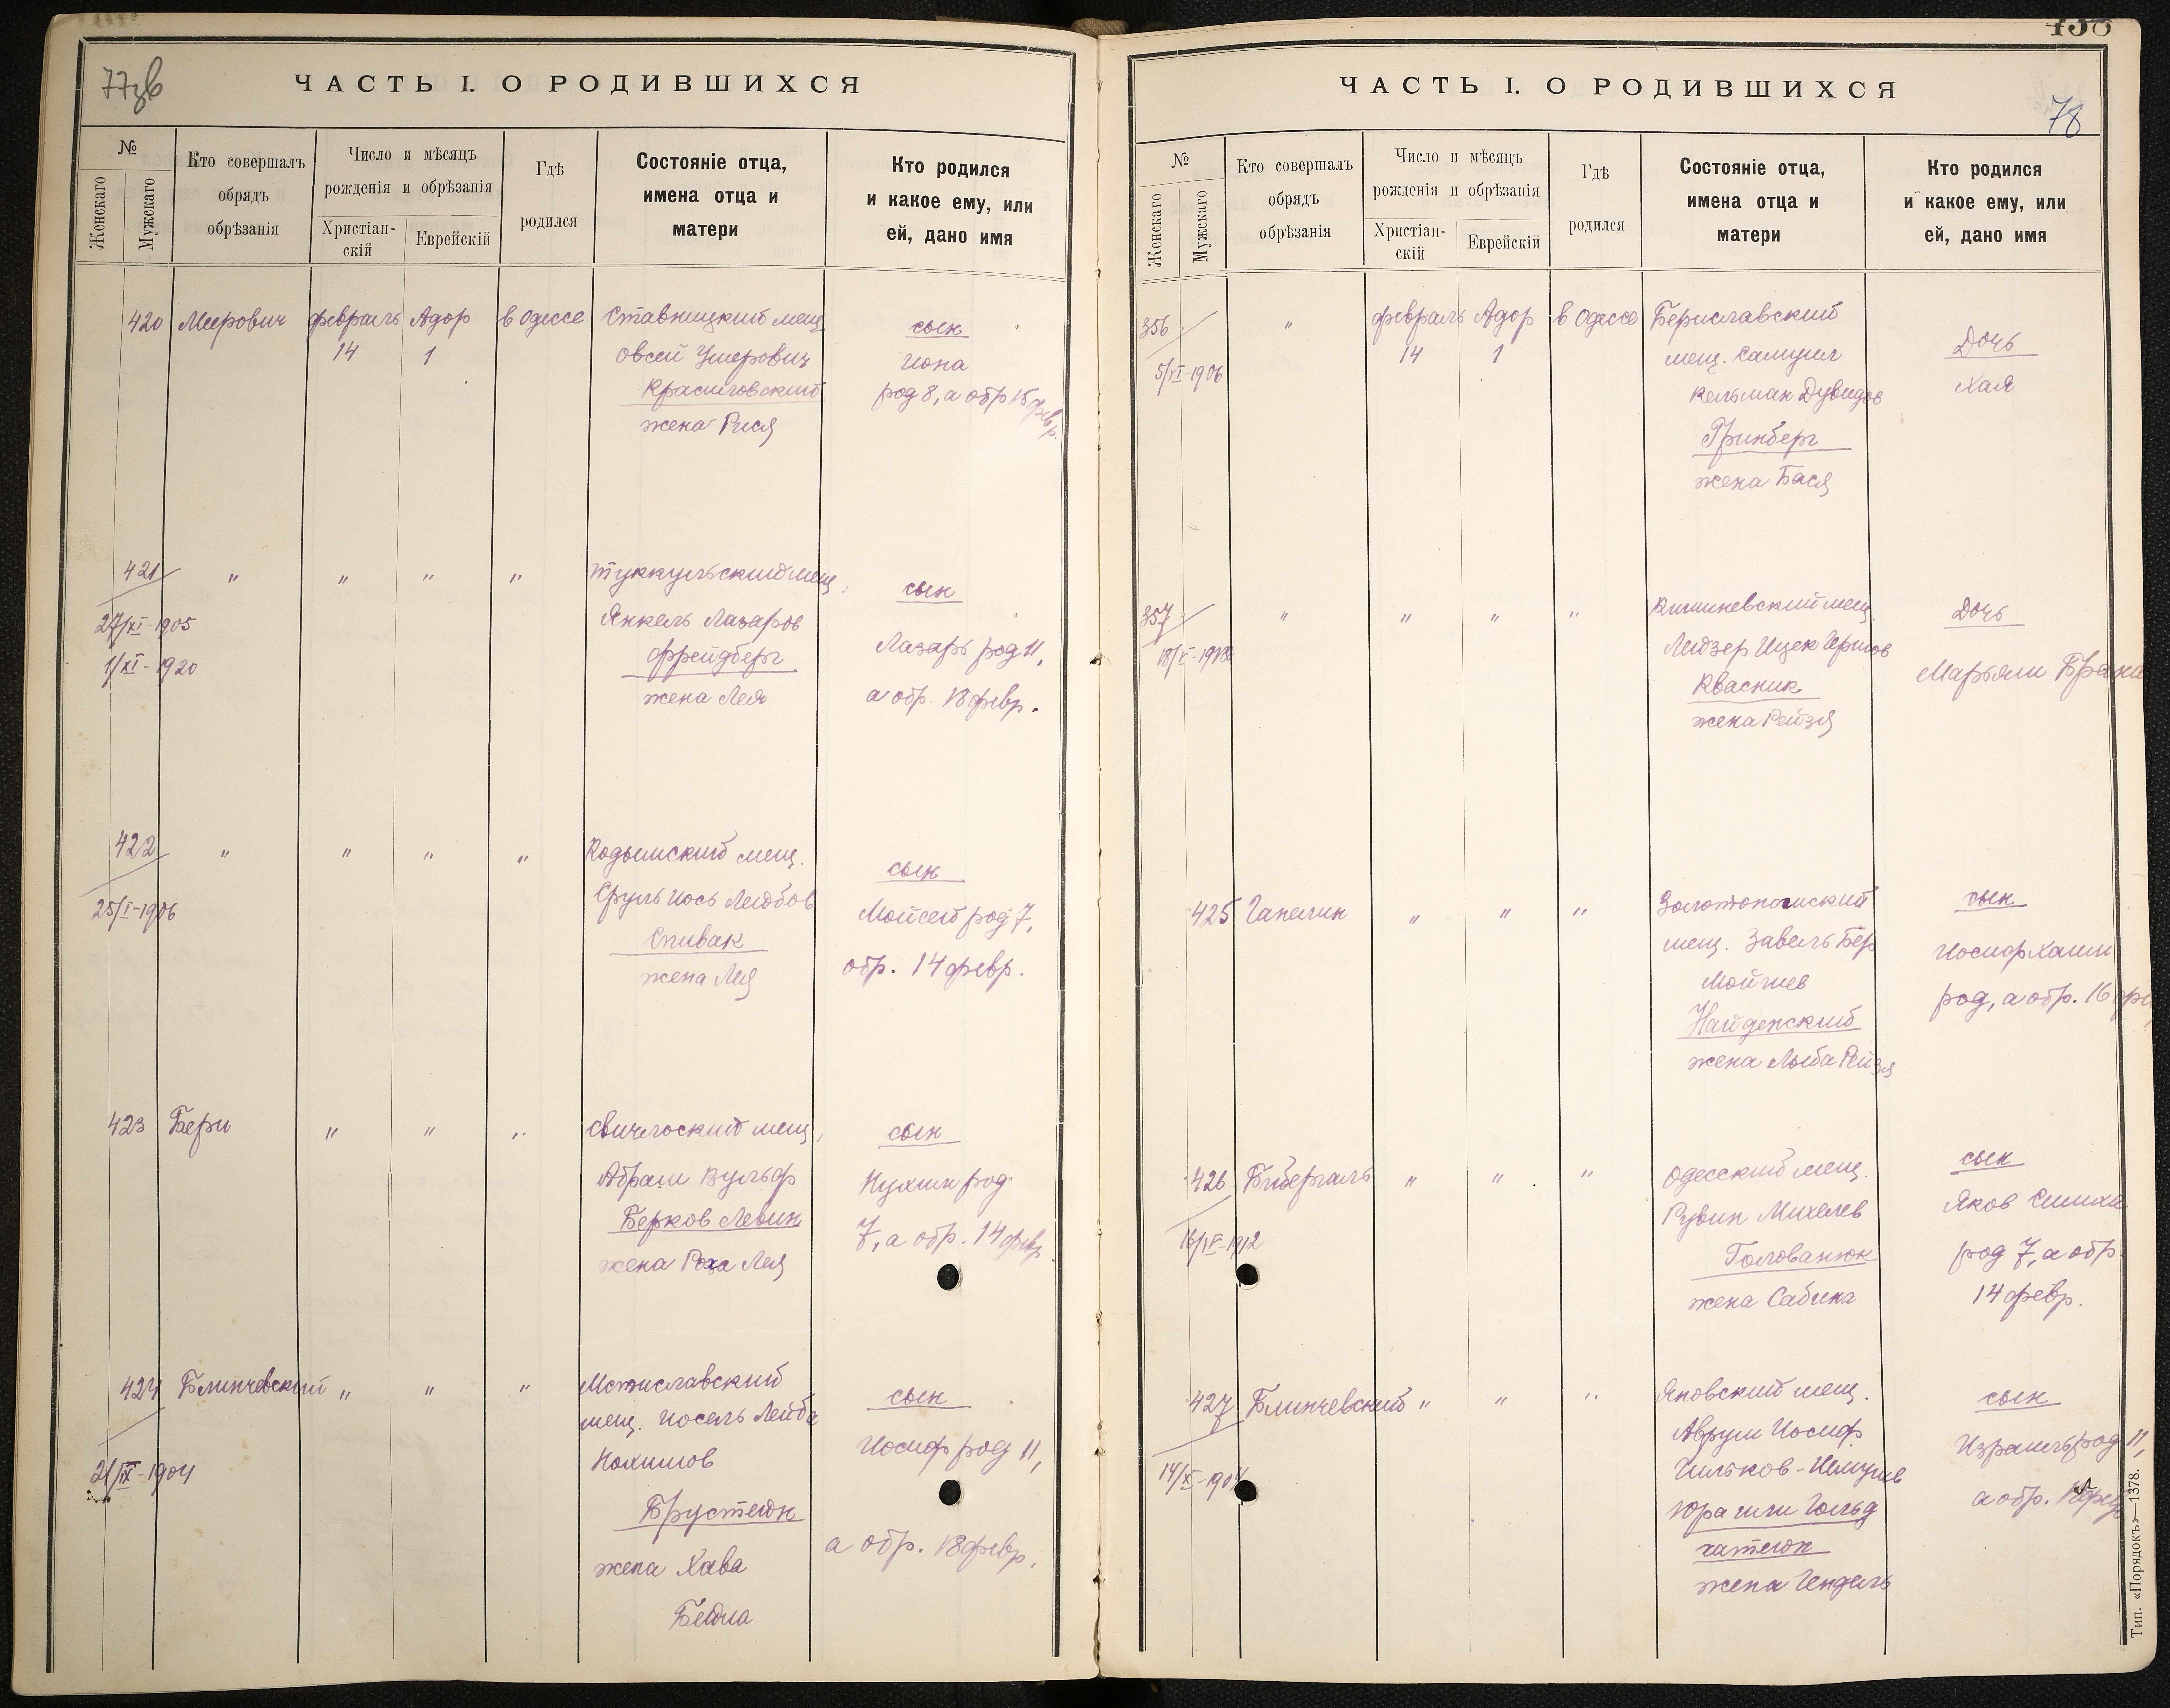 ЧАСТЬ I. О РОДИВШИХСЯ
№
Женскаго
Мужскаго
Кто совершалъ
обрядъ
обрѣзанія
Число и мѣсяцъ
рожденія и обрѣзанія
Христіан-
скій
Еврейскій
Гдѣ
родился
Состояніе отца,
имена отца и
матери
Кто родился
и какое ему, или
ей, дано имя
420 Меерович февраль Адор в Одессе Ставницкий мещ
14 1 Овсей Умерович
Красиловский
жена Рися
сын
Иона
род 8, а обр 15 февр.
421 " " " " Туккульский мещ,
27/XI-1905 Янкель Лазаров
1/XI-1920 Фрейдберг
жена Лея
сын
Лазарь род 11,
а обр. 18 февр.
422 " " " " Кодымский мещ.
25/I-1906 Сруль Иось Лейбов
Спивак
жена Лея
сын
Мойсей род 7,
обр. 14 февр.
423 Бери " " " мещ,
Абрам Вульф
Берков Левин
жена Роха Лея
сын
Нухим род
7, а обр. 14 февр.
424 Блинчевский " " " Мстиславский
21/IX-1904 мещ. Иосель Лейба
Нохимов
Брустейн
жена Хава
Бейла
сын
Иосиф род 11,
а обр. 18 февр.
ЧАСТЬ I. О РОДИВШИХСЯ
78
№
Женскаго
Мужскаго
Кто совершалъ
обрядъ
обрѣзанія
Число и мѣсяцъ
рожденія и обрѣзанія
Христіан-
скій
Еврейскій
Гдѣ
родился
Состояніе отца,
имена отца и
матери
Кто родился
и какое ему, или
ей, дано имя
356 " февраль Адор в Одессе Бериславский
5/VI-1906 14 1 мещ. Самуил
Кельман Дувидов
Гринберг
жена Бася
Дочь
Хая
357 " " " " Кишиневский мещ.
Лейзер Ицек Гершов
Квасник
жена Рейзя
Дочь
Марьям Брана
425 Ганелин " " " Золотоношский
мещ. Завель Бер
Найденский
жена Рейзя
сын
Иосиф Хаим
род, а обр. 16
426 Бибергаль " " " Одесский мещ.
16/IV-1912 Рувин Михелев
Голованюк
жена Сабина
сын
Яков Симха
род 7, а обр.
14 февр.
427 Блинчевский " " " Яновский мещ.
Аврум Иосиф
Юра или Гольд
жена Гендель
сын
Израиль род 11,
а обр.
Тип. «Порядокъ»—1378.